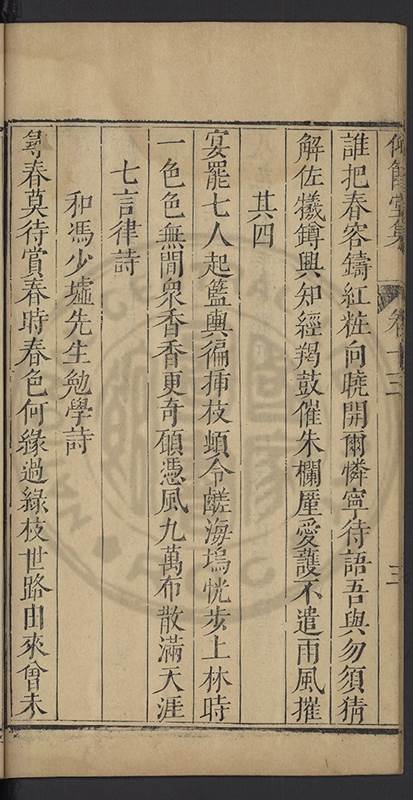 仰節堂集 卷十三 三
誰把春容鑄紅粧向曉開爾憐寧待語吾與勿須猜
解佐犧罇興知經羯鼓催朱欄廑愛護不遣雨風摧
其四
宴罷七人起籃輿徧揷枝頓令鹺海塢恍步上林時
一色色無閒衆香香更奇願憑風九萬布散滿天涯
七言律詩
和馮少墟先生勉學詩
尋春莫待賞春時春色何緣過綠枝世路由來會未